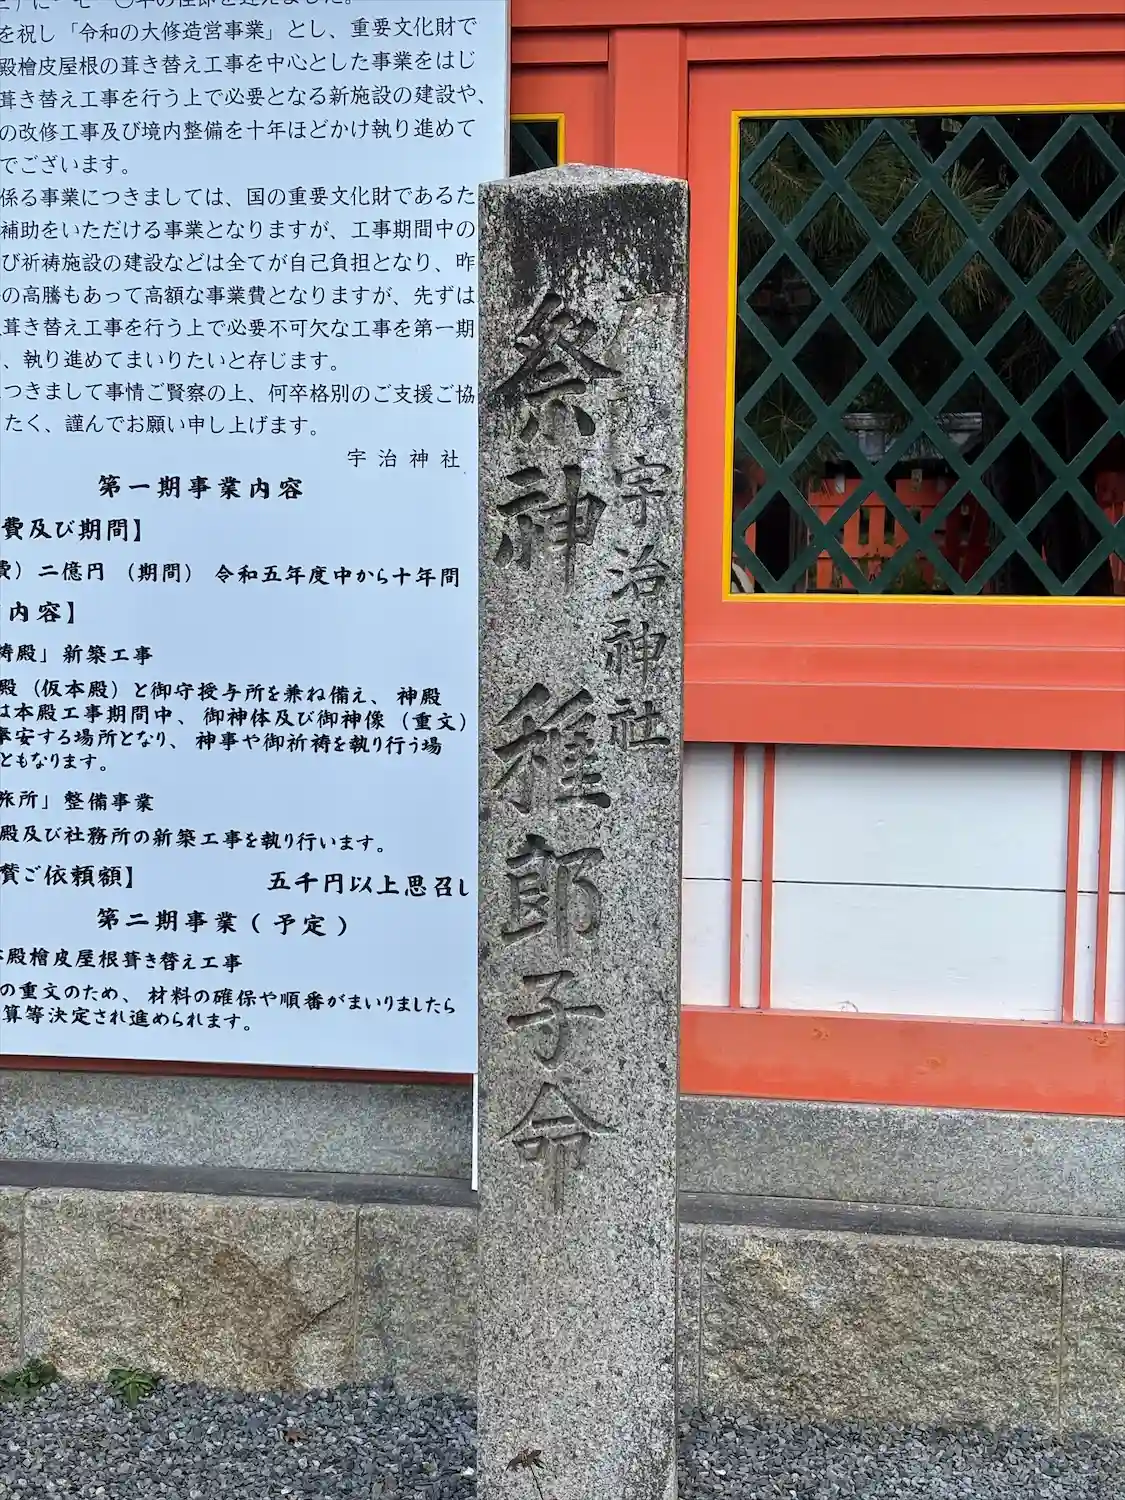 に一七一〇年の佳節を迎えました。
を祝し「令和の大修造営事業」とし、重要文化財で
殿檜皮屋根の葺き替え工事を中心とした事業をはじ
葺き替え工事を行う上で必要となる新施設の建設や、
の改修工事及び境内整備を十年ほどかけ執り進めて
でございます。
係る事業につきましては、国の重要文化財であるた
補助をいただける事業となりますが、工事期間中の
び祈祷施設の建設などは全てが自己負担となり、昨
の高騰もあって高額な事業費となりますが、先ずは
葺き替え工事を行う上で必要不可欠な工事を第一期
、執り進めてまいりたいと存じます。
つきまして事情ご賢察の上、何卒格別のご支援ご協
たく、謹んでお願い申し上げます。
宇治神社
第一期事業内容
費及び期間】
費）二億円（期間）令和五年度中から十年間
内容】
祷殿」新築工事
殿（仮本殿）と御守授与所を兼ね備え、神殿
は本殿工事期間中、御神体及び御神像（重文）
奉安する場所となり、神事や御祈祷を執り行う場
ともなります。
旅所」整備事業
殿及び社務所の新築工事を執り行います。
賛ご依頼額】 五千円以上思召し
第二期事業（予定）
本殿檜皮屋根葺き替え工事
の重文のため、材料の確保や順番がまいりましたら
算等決定され進められます。
宇治神社
祭神 稚郎子命